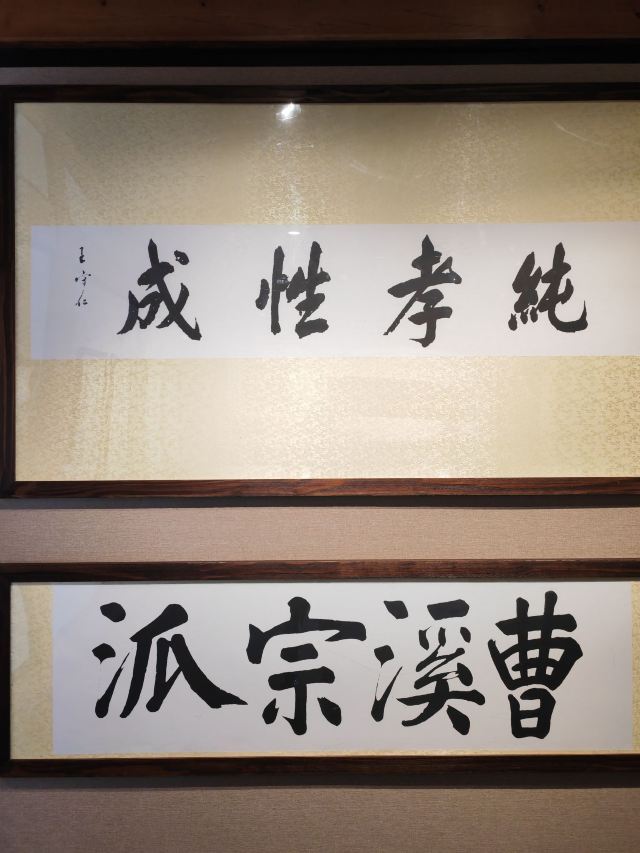 純孝性成
王守仁
曹溪宗派